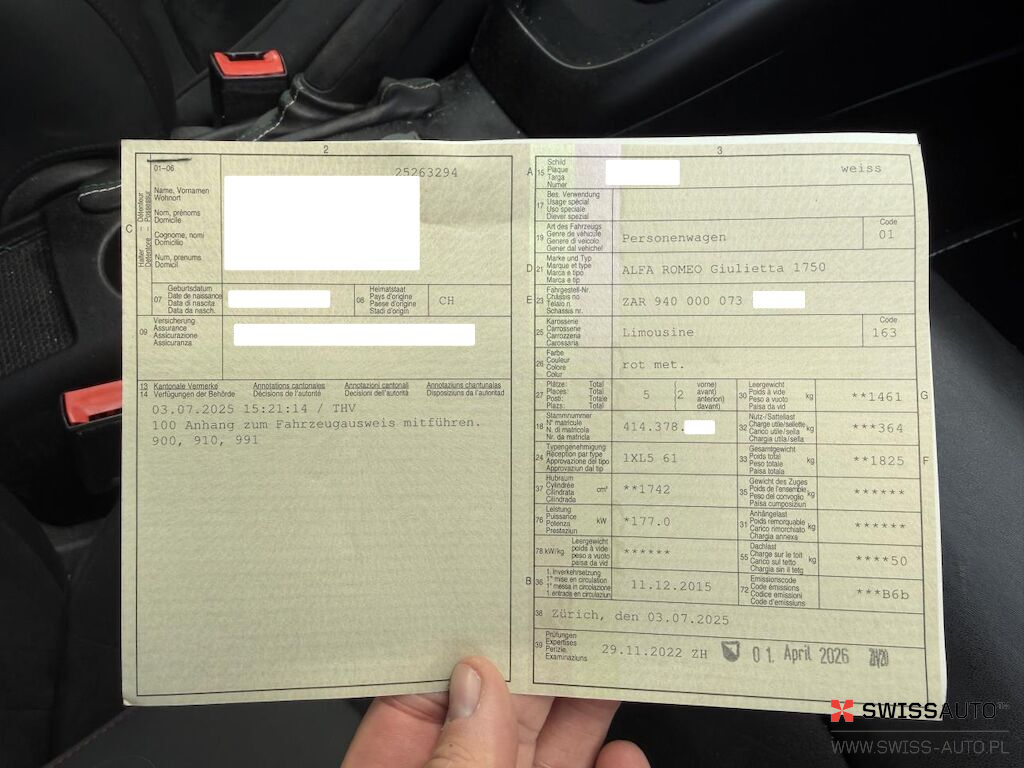 2
01-06
25263294
C
Halter – Détenteur
Detentore – Possessur
Name, Vornamen
Wohnort
Nom, prénoms
Domicile
Cognome, nomi
Domicilio
Num, prenums
Domicil
07
Geburtsdatum
Date de naissance
Data di nascita
Data da nasch.
08
Heimatstaat
Pays d'origine
Paese d'origine
Stadi d'origin
CH
09
Versicherung
Assurance
Assicurazione
Assicuranza
13
14
Kantonale Vermerke
Verfügungen der Behörde
Annotations cantonales
Décisions de l'autorité
Annotazioni cantonali
Decisioni dell'autorità
Annotaziuns chantunalas
Disposiziuns da l'autoritad
03.07.2025 15:21:14 / THV
100 Anhang zum Fahrzeugausweis mitführen.
900, 910, 991
3
A 15
Schild
Plaque
Targa
Numer
weiss
17
Bes. Verwendung
Usage spécial
Uso speciale
Diever spezial
19
Art des Fahrzeugs
Genre de véhicule
Genere di veicolo
Gener dal vehichel
Personenwagen
Code
01
D 21
Marke und Typ
Marque et type
Marca e tipo
Marca e tip
ALFA ROMEO Giulietta 1750
E 23
Fahrgestell-Nr.
Châssis no
Telaio n.
Schassis nr.
ZAR 940 000 073
25
Karosserie
Carrosserie
Carrozzeria
Carossaria
Limousine
Code
163
26
Farbe
Couleur
Colore
Colur
rot met.
27
Plätze: Total
Places: Total
Posti: Totale
Plazs: Total
5 (2
vorne)
avant)
anteriori)
davant)
30
Leergewicht
Poids à vide
Peso a vuoto
Paisa da vid
kg
**1461
G
18
Stammnummer
N° matricule
N. di matricola
Nr. da matricla
414.378.
32
Nutz-/Sattellast
Charge utile/sellette
Carico utile/sella
Chargia utila/sella
kg
***364
24
Typengenehmigung
Réception par type
Approvazione del tipo
Approvaziun dal tip
1XL5 61
33
Gesamtgewicht
Poids total
Peso totale
Paisa totala
kg
**1825
F
37
Hubraum
Cylindrée
Cilindrata
Cilindrada
cm³
**1742
35
Gewicht des Zuges
Poids de l'ensemble
Peso del convoglio
Paisa cumposiziun
kg
******
76
Leistung
Puissance
Potenza
Prestaziun
kW
*177.0
31
Anhängelast
Poids remorquable
Carico rimorchiato
Chargia annexa
kg
******
78 kW/kg
Leergewicht
poids à vide
peso a vuoto
paisa da vid
******
55
Dachlast
Charge sur le toit
Carico sul tetto
Chargia sin il tetg
kg
****50
B 36
1. Inverkehrsetzung
1re mise en circulation
1a messa in circolazione
1. entrada en circulaziun
11.12.2015
72
Emissionscode
Code émissions
Codice emissioni
Code d'emissiuns
***B6b
38
Zürich, den 03.07.2025
39
Prüfungen
Expertises
Perizie
Examinaziuns
29.11.2022 ZH
01. April 2026
SWISSAUTO
WWW.SWISS-AUTO.PL